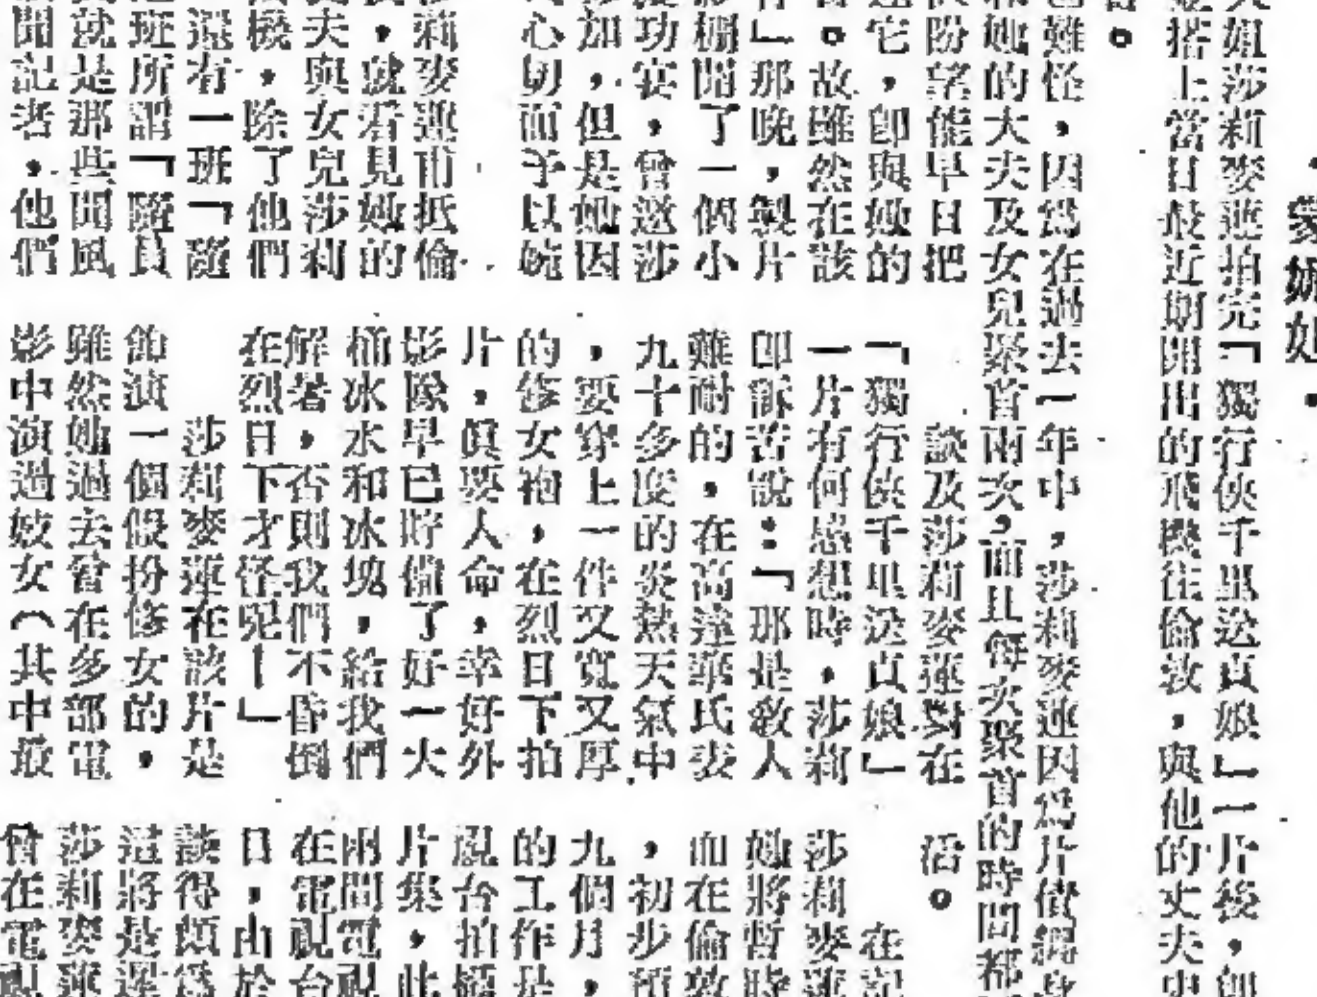 蒙妮妲．
大姐莎莉麥蓮拍完「獨行俠千里送貞娘」一片後，卽
搭上當日最近期開出的飛機往倫敦，與他的丈夫史
難怪，因爲在過去一年中，莎莉麥蓮因爲片債纏身
和她的丈夫及女兒聚首兩次，而且每次聚首的時間都
快盼望能早日把
它，卽與她的
。故雖然在該
」那晚，製片
棚開了一個小
功宴，曾邀莎
加，但是她因
心切而予以婉
莉麥蓮甫抵倫
，就看見她的
夫與女兒莎莉
機，除了他們
還有一班「隨
班所謂「隨員
就是那些聞風
聞記者，他們
談及莎莉麥蓮對在
「獨行俠千里送貞娘」
一片有何感想時，莎莉
卽訴苦說：「那是敎人
難耐的，在高達華氏表
九十多度的炎熱天氣中
，要穿上一件又寬又厚
的修女袍，在烈日下拍
片，眞要人命，幸好外
影隊早已貯備了好一大
桶冰水和冰塊，給我們
解暑，否則我們不昏倒
在烈日下才怪呢！」
莎莉麥蓮在該片是
飾演一個假扮修女的，
雖然她過去曾在多部電
影中演過妓女（其中最
活。
在記
莎莉麥蓮
她將暫時
而在倫敦
，初步預
九個月，
的工作是
視台拍攝
片集，此
間電視
在電視台
日，由於
談得頗爲
這將是運
莎莉麥蓮
曾在電視